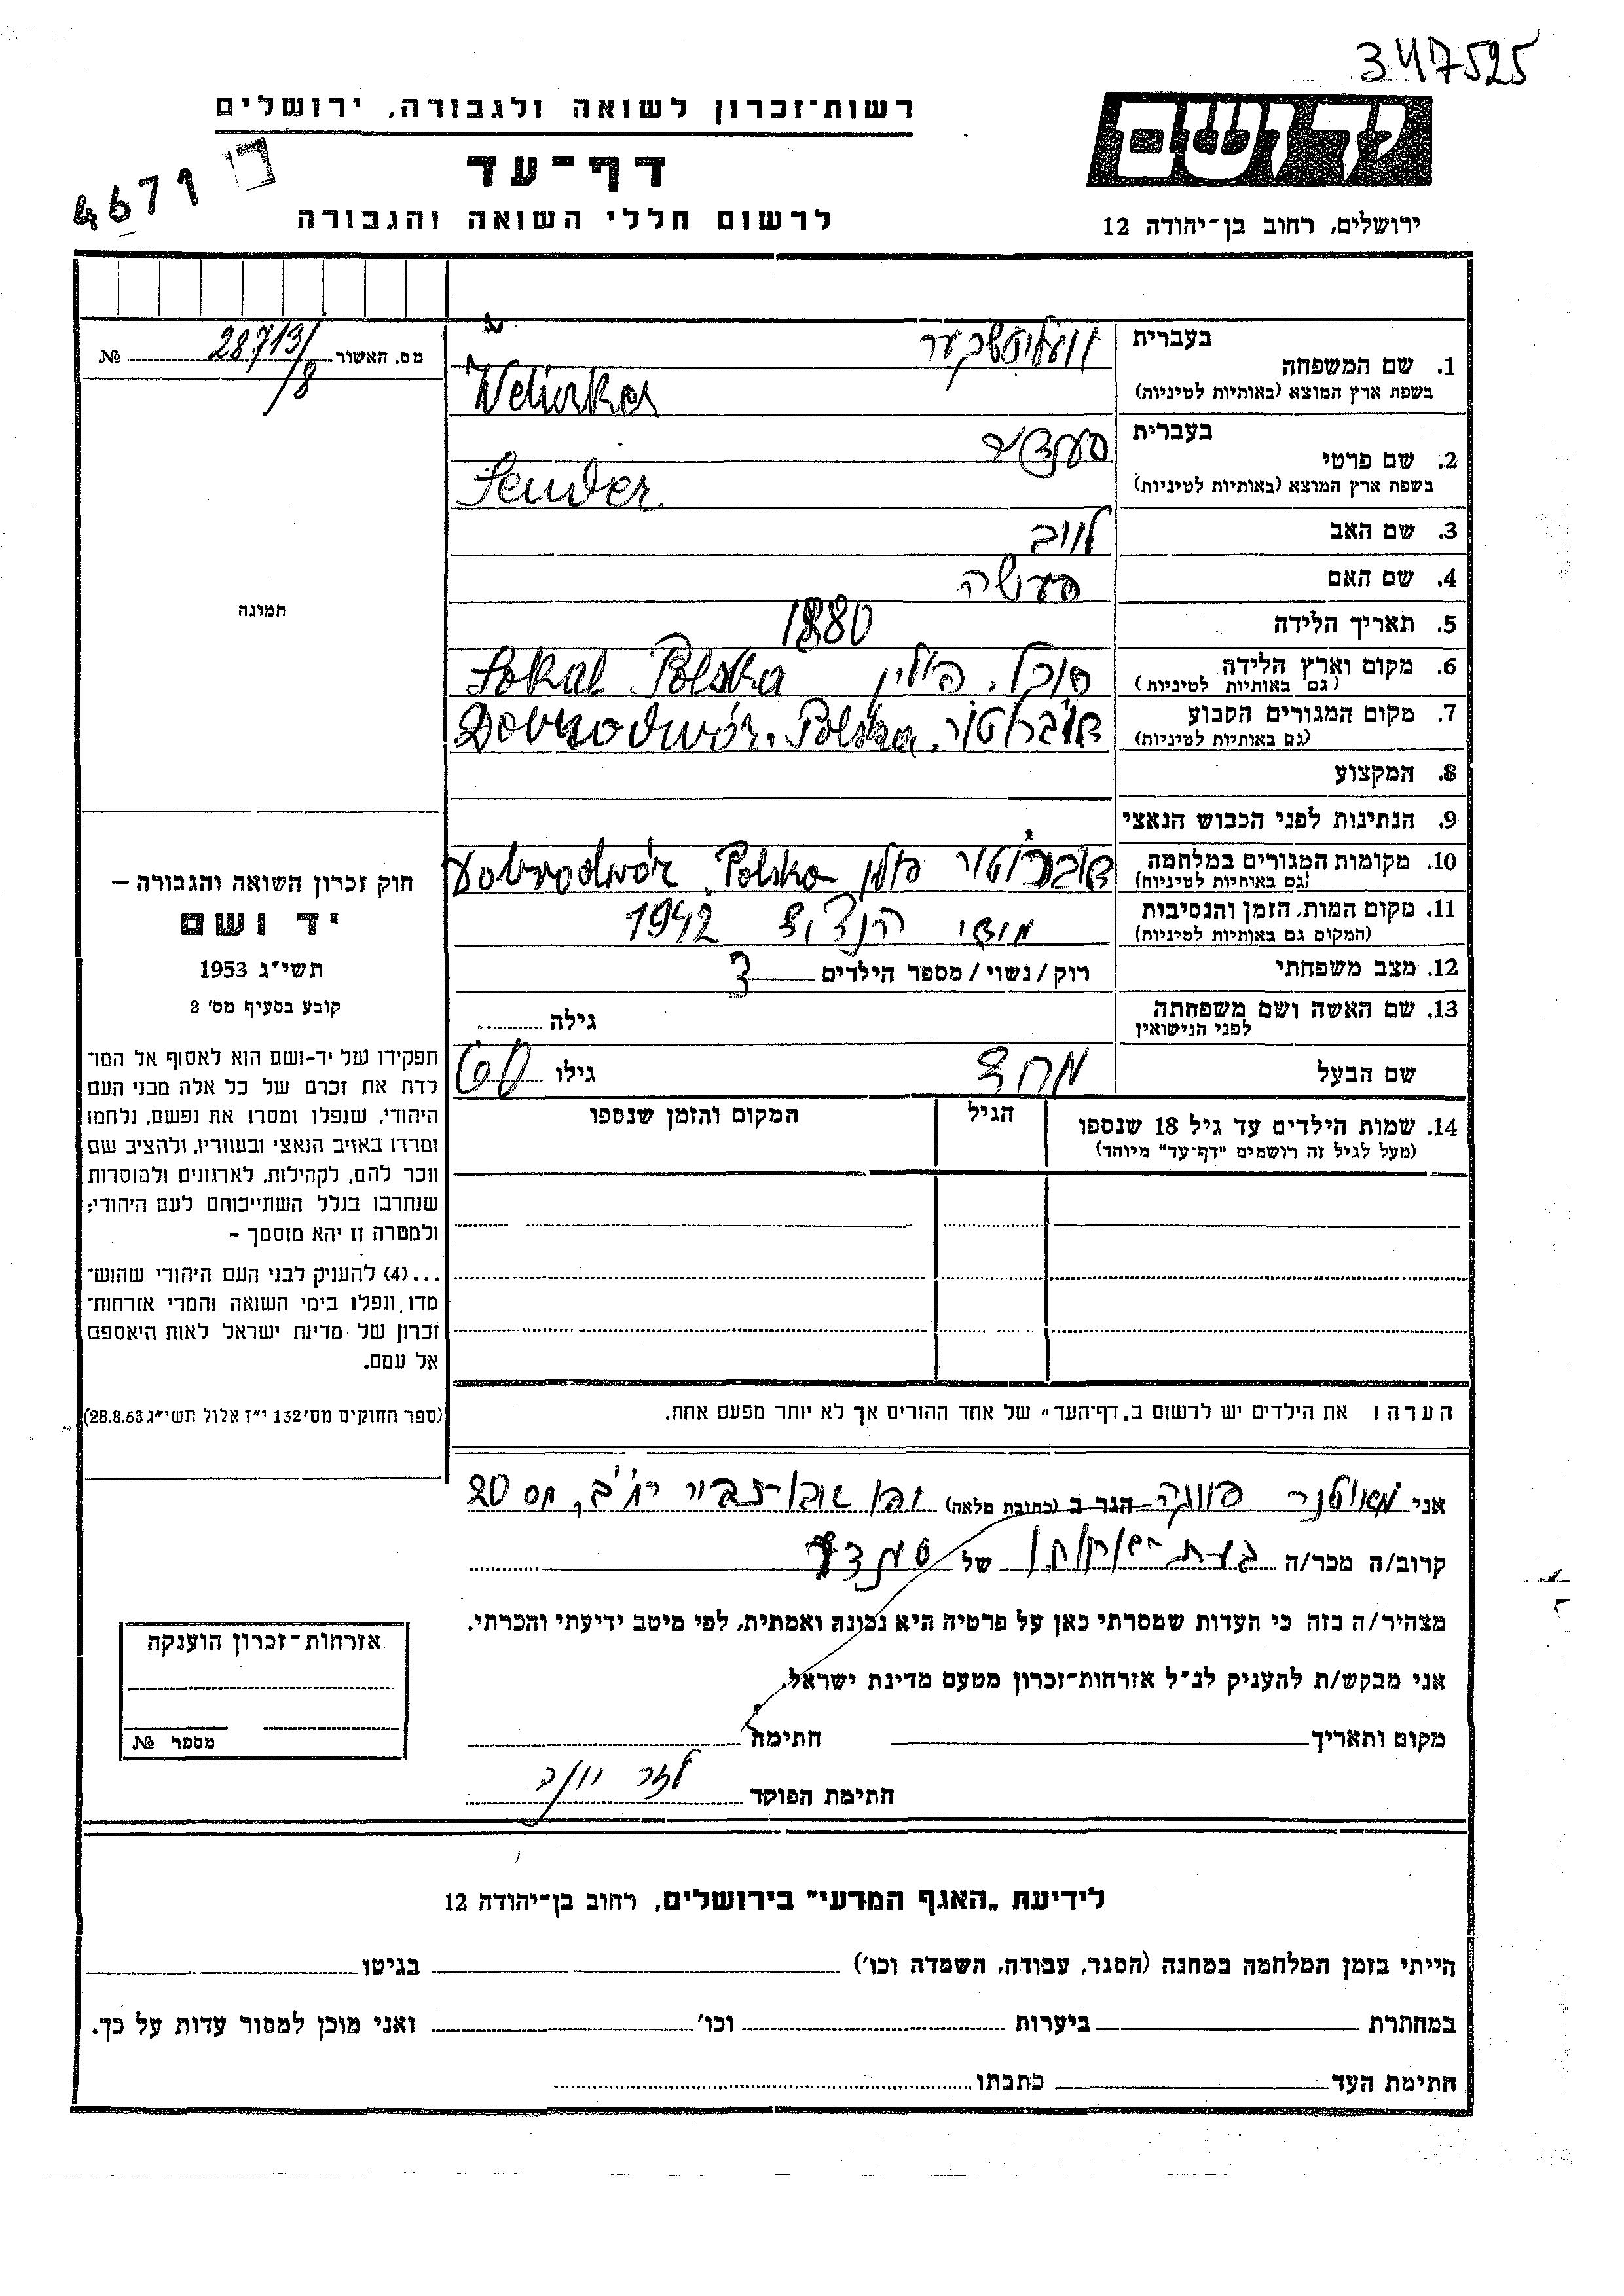 347525
רשות־זכרון לשואה ולגבורה, ירושלים
יד ושם
דף־עד
4671
לרשום חללי השואה והגבורה
ירושלים, רחוב בן־יהודה 12
מס. האשור 28713/8 №
תמונה
בעברית
1. שם המשפחה
בשפת ארץ המוצא (באותיות לטיניות) Weliczker
בעברית סענדער
2. שם פרטי
בשפת ארץ המוצא (באותיות לטיניות) Sender
3. שם האב
4. שם האם
5. תאריך הלידה 1880
6. מקום וארץ הלידה סוקל, פולין Sokal Polska
(גם באותיות לטיניות)
7. מקום המגורים הקבוע Polska
(גם באותיות לטיניות)
8. המקצוע
9. הנתינות לפני הכבוש הנאצי
10. מקומות המגורים במלחמה פולין Dobrodwór, Polska
(גם באותיות לטיניות)
11. מקום המות, הזמן והנסיבות 1942
(המקום גם באותיות לטיניות)
12. מצב משפחתי רוק/נשוי/מספר הילדים 3
13. שם האשה ושם משפחתה גילה
לפני הנישואין
שם הבעל גילו 60
14. שמות הילדים עד גיל 18 שנספו הגיל המקום והזמן שנספו
(מעל לגיל זה רושמים "דף־עד" מיוחד)
הערה: את הילדים יש לרשום ב„דף־העד" של אחד ההורים אך לא יותר מפעם אחת.
חוק זכרון השואה והגבורה –
יד ושם
תשי״ג 1953
קובע בסעיף מס׳ 2
תפקידו של יד-ושם הוא לאסוף אל המו־
לדת את זכרם של כל אלה מבני העם
היהודי, שנפלו ומסרו את נפשם, נלחמו
ומרדו באויב הנאצי ובעוזריו, ולהציב שם
וזכר להם, לקהילות, לארגונים ולמוסדות
שנחרבו בגלל השתייכותם לעם היהודי;
ולמטרה זו יהא מוסמך –
...(4) להעניק לבני העם היהודי שהוש־
מדו ונפלו בימי השואה והמרי אזרחות־
זכרון של מדינת ישראל לאות היאספם
אל עמם.
(ספר החוקים מס׳ 132 י״ז אלול תשי״ג 28.8.53)
אני הגר ב (כתובת מלאה) 20
קרוב/ה מכר/ה של
מצהיר/ה בזה כי העדות שמסרתי כאן על פרטיה היא נכונה ואמתית, לפי מיטב ידיעתי והכרתי.
אני מבקש/ת להעניק לנ״ל אזרחות־זכרון מטעם מדינת ישראל.
מקום ותאריך חתימה
חתימת הפוקד
אזרחות־זכרון הוענקה
מספר №
לידיעת „האגף המדעי" בירושלים, רחוב בן־יהודה 12
הייתי בזמן המלחמה במחנה (הסגר, עבודה, השמדה וכו׳) בגיטו
במחתרת ביערות וכו׳ ואני מוכן למסור עדות על כך.
חתימת העד כתבתו